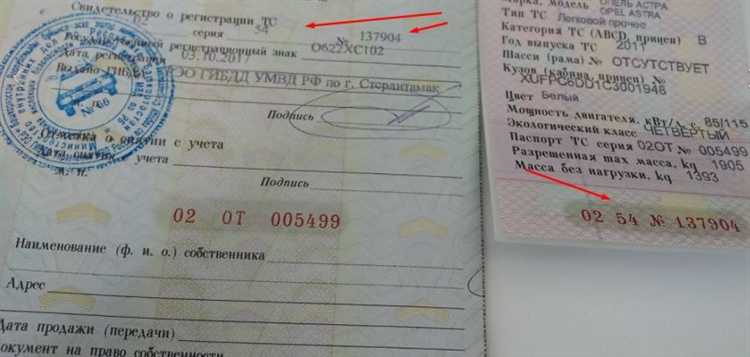 Свидетельство о регистрации ТС
серия 54 № 137904
Государственный регистрационный знак О622ХС102
Дата регистрации 03.10.2017
Выдано ГИБДД РЭО ГИБДД УМВД РФ по г. Стерлитамак
Подпись
Отметка о снятии с учета
Дата снятия с учета
М. П.
Подпись
02 ОТ 005499
Наименование (ф. и. о.) собственника
Адрес
Дата продажи (передачи)
Документ на право собственности
Марка, модель ОПЕЛЬ АСТРА
OPEL ASTRA
Тип ТС Легковой прочее
Категория ТС (ABCD, прицеп) B
Год выпуска ТС 2011
Шасси (рама) № ОТСУТСТВУЕТ
Кузов (кабина, прицеп) №
XUFPC6DD1C3001948
Цвет Белый
Мощность двигателя, кВт/л. с. 85/115
Экологический класс ЧЕТВЕРТЫЙ
Паспорт ТС серия 02ОТ № 005499
Разрешенная max масса, kg 1905
Масса без нагрузки, kg 1393
02 54 № 137904